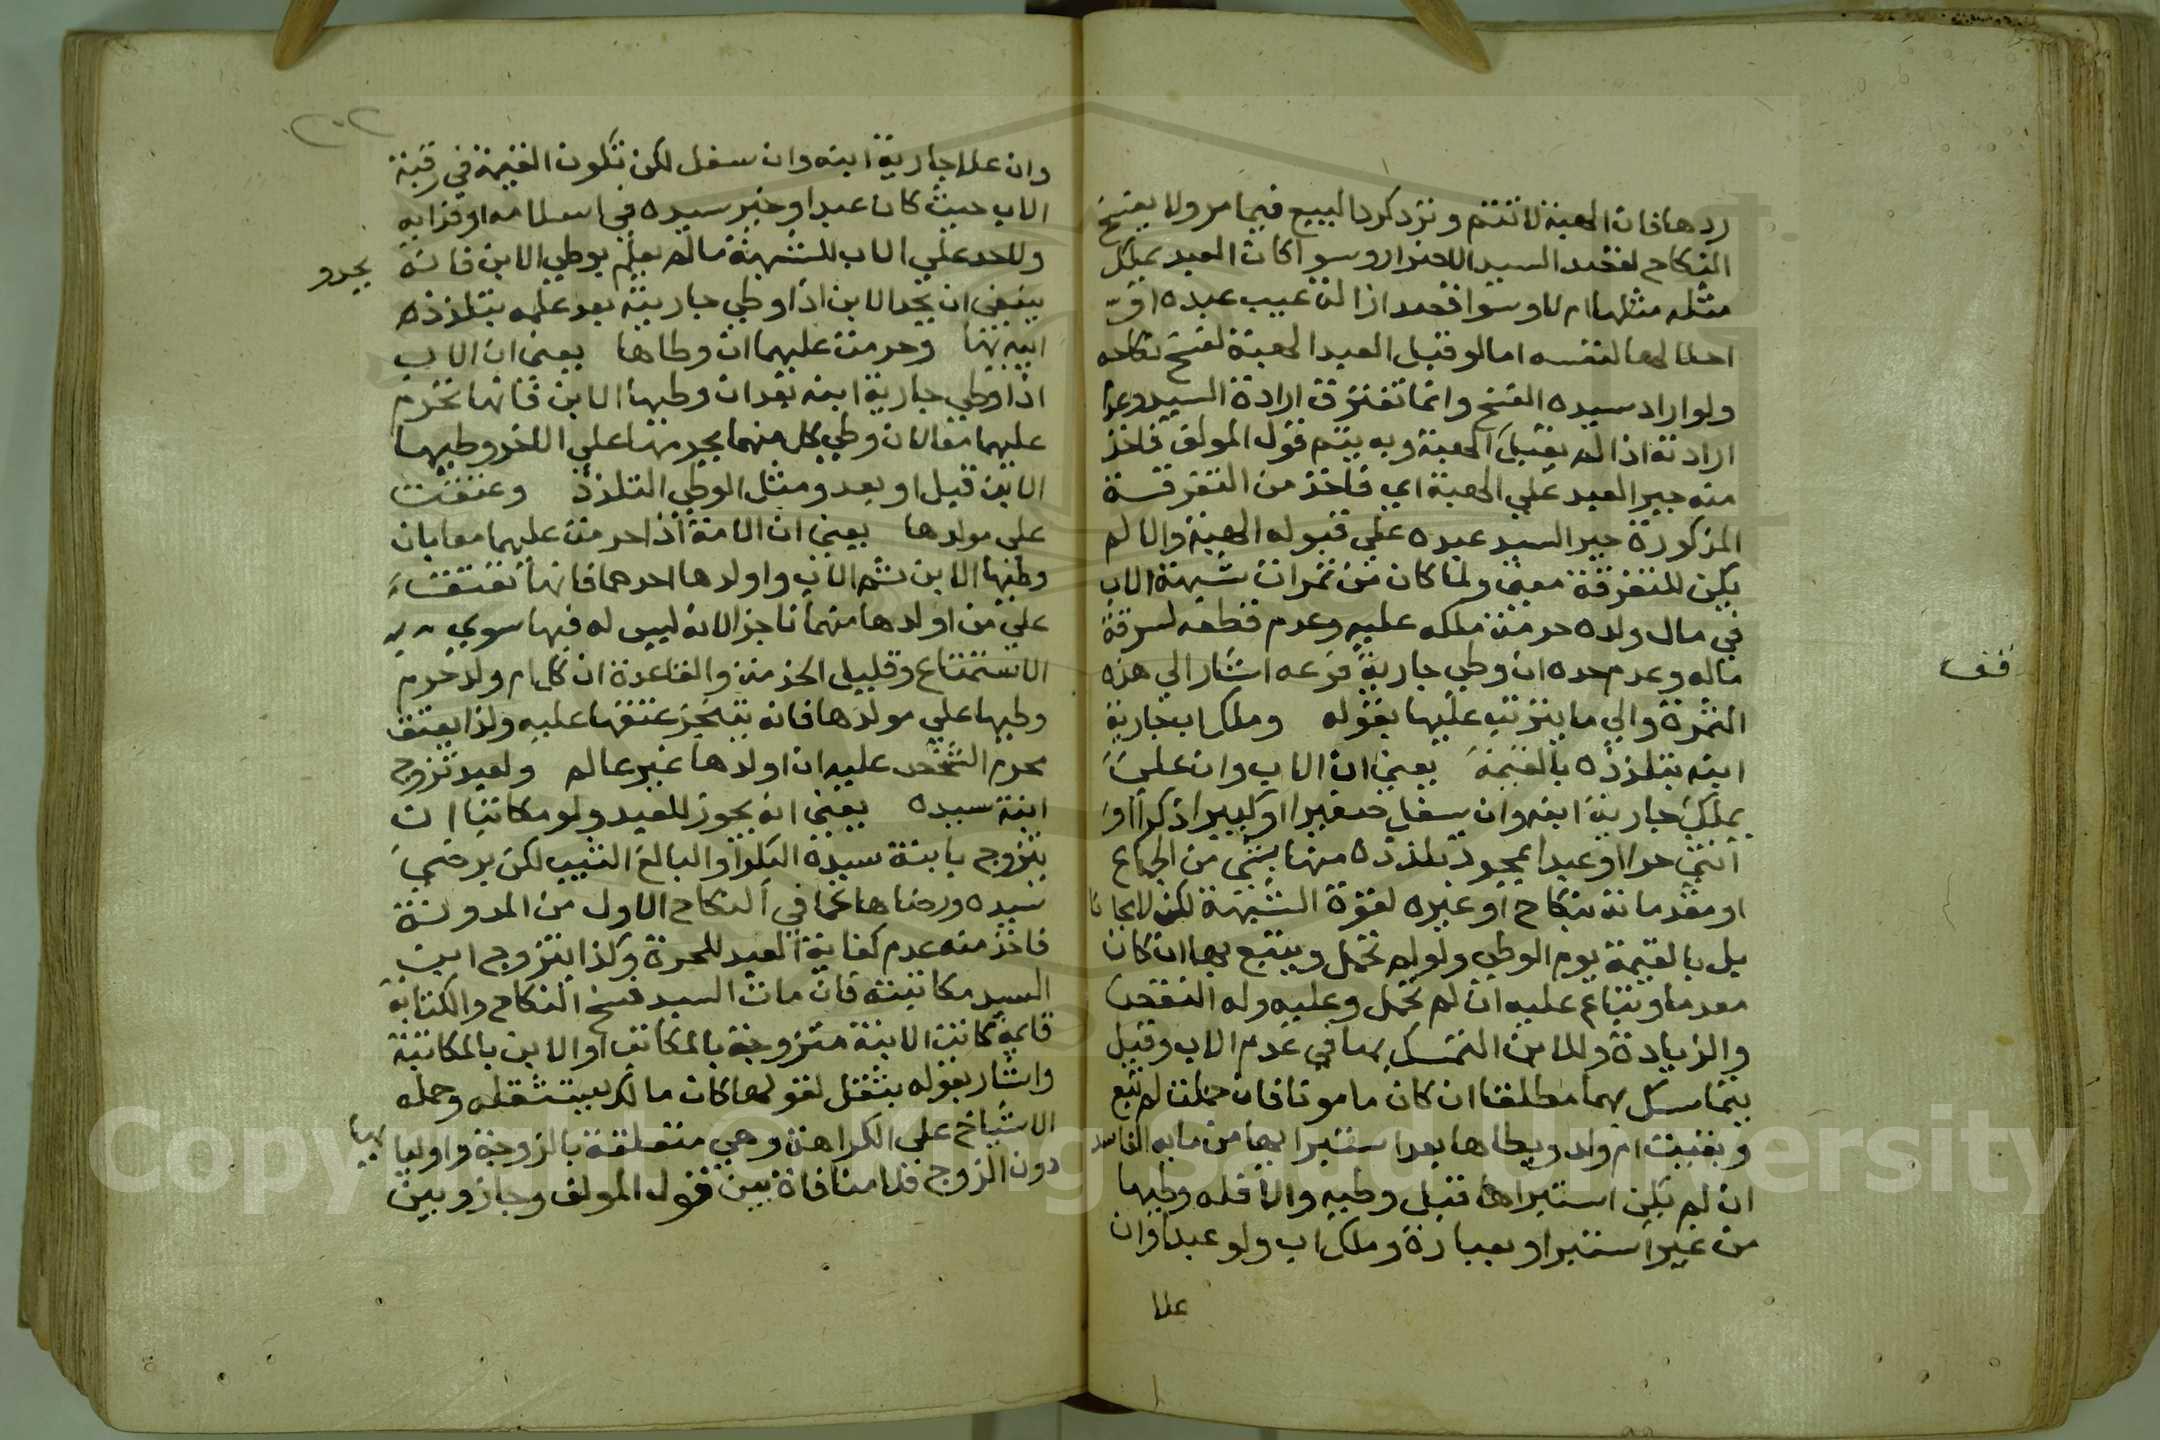 ردها فان الهبة لا تتم وترد كرد المبيع فيما مر ولا يفسخ
النكاح لقصد السيد الاضرار وسوا كان العبد يملك
مثله مثلها ام لا وسوا قصد ازالة عيب عبده او
احلالها لنفسه اما لو قبل العبد الهبة لفسخ نكاحه
ولو اراد سيده الفسخ وانما تفترق ارادة السيد وعدم
ارادته اذا لم يقبل الهبة وبه يتم قول المولف فاخذ
منه جبر العبد على الهبة اي فاخذ من التفرقة
المذكورة جبر السيد عبده على قبوله الهبة والا لم
يكن للتفرقة معنى ولما كان من ثمرات شبهة الاب
في مال ولده حرمة ملكه عليه وعدم قطعه لسرقة
ماله وعدم حده ان وطي جارية فرعه اشار الى هذه
الثمرة والي ما يترتب عليها بقوله وملك اب جارية
ابنه بتلذذه بالقيمة يعني ان الاب وان على
يملك جارية ابنه وان سفل صغيرا او كبيرا ذكرا او
انثى حرا او عبدا بمجرد تلذذه منها بشي من الجماع
او مقدماته بنكاح او غيره لقوة الشبهة لكن لا مجانا
بل بالقيمة يوم الوطي ولو لم تحمل ويتبع بها ان كان
معدما وتباع عليه ان لم تحمل وعليه وله النقص
والزيادة وللابن التمسك بها في عدم الاب وقيل
يتماسك بها مطلقا ان كان مامونا فان حملت لم تبع
وبقيت ام ولد ويطاها بعد استبرايها من مايه الفاسد
ان لم يكن استبراها قبل وطيه والا فله وطيها
من غير استبرا وبعبارة وملك اب ولو عبدا وان
علا
قف
٢٠٢
وان علا جارية ابنه وان سفل لكن تكون القيمة في رقبة
الاب حيث كان عبدا وخير سيده في اسلامه او فدايه
وللحد على الاب للشبهة ما لم يعلم بوطي الابن فانه يحد و
ينبغي ان يحد الابن اذا وطي جاريته بعد علمه بتلذذه
ابيه بها وحرمت عليهما ان وطاها يعني ان الاب
اذا وطي جارية ابنه بعد ان وطيها الابن فانها تحرم
عليهما معا لان وطي كل منهما يحرمها على الاخر وطيها
الابن قبل او بعد ومثل الوطي التلذذ وعتقت
على مولدها يعني ان الامة اذا حرمت عليهما معا بان
وطيها الابن ثم الاب واولدها احدهما فانها تعتق
على من اولدها منهما ناجزا لانه ليس له فيها سوي
الاستمتاع وقليل الخدمة والقاعدة ان كل ام ولد حرم
وطيها على مولدها فانه يتنجز عتقها عليه ولذا يعتق
محرم الشخص عليه ان اولدها غير عالم ولعبد تزوج
ابنة سيده يعني انه يجوز للعبد ولو مكاتبا ان
يتزوج بابنة سيده البكر او البالغ الثيب لكن برضي
سيده ورضاها كما في النكاح الاول من المدونة
فاخذ منه عدم كفاية العبد للحرة وكذا يتزوج ابن
السيد مكاتبته فان مات السيد فسخ النكاح والكتابة
قايمة كانت الابنة متزوجة بالمكاتب او الابن بالمكاتبة
واشار بقوله بثقل لقولها كان مالك يستثقله وحمله
الاشياخ على الكراهة وهي متعلقة بالزوجة واوليا يها
دون الزوج فلا منافاة بين قول المولف وجاز وبين
Copyright © King Saud University